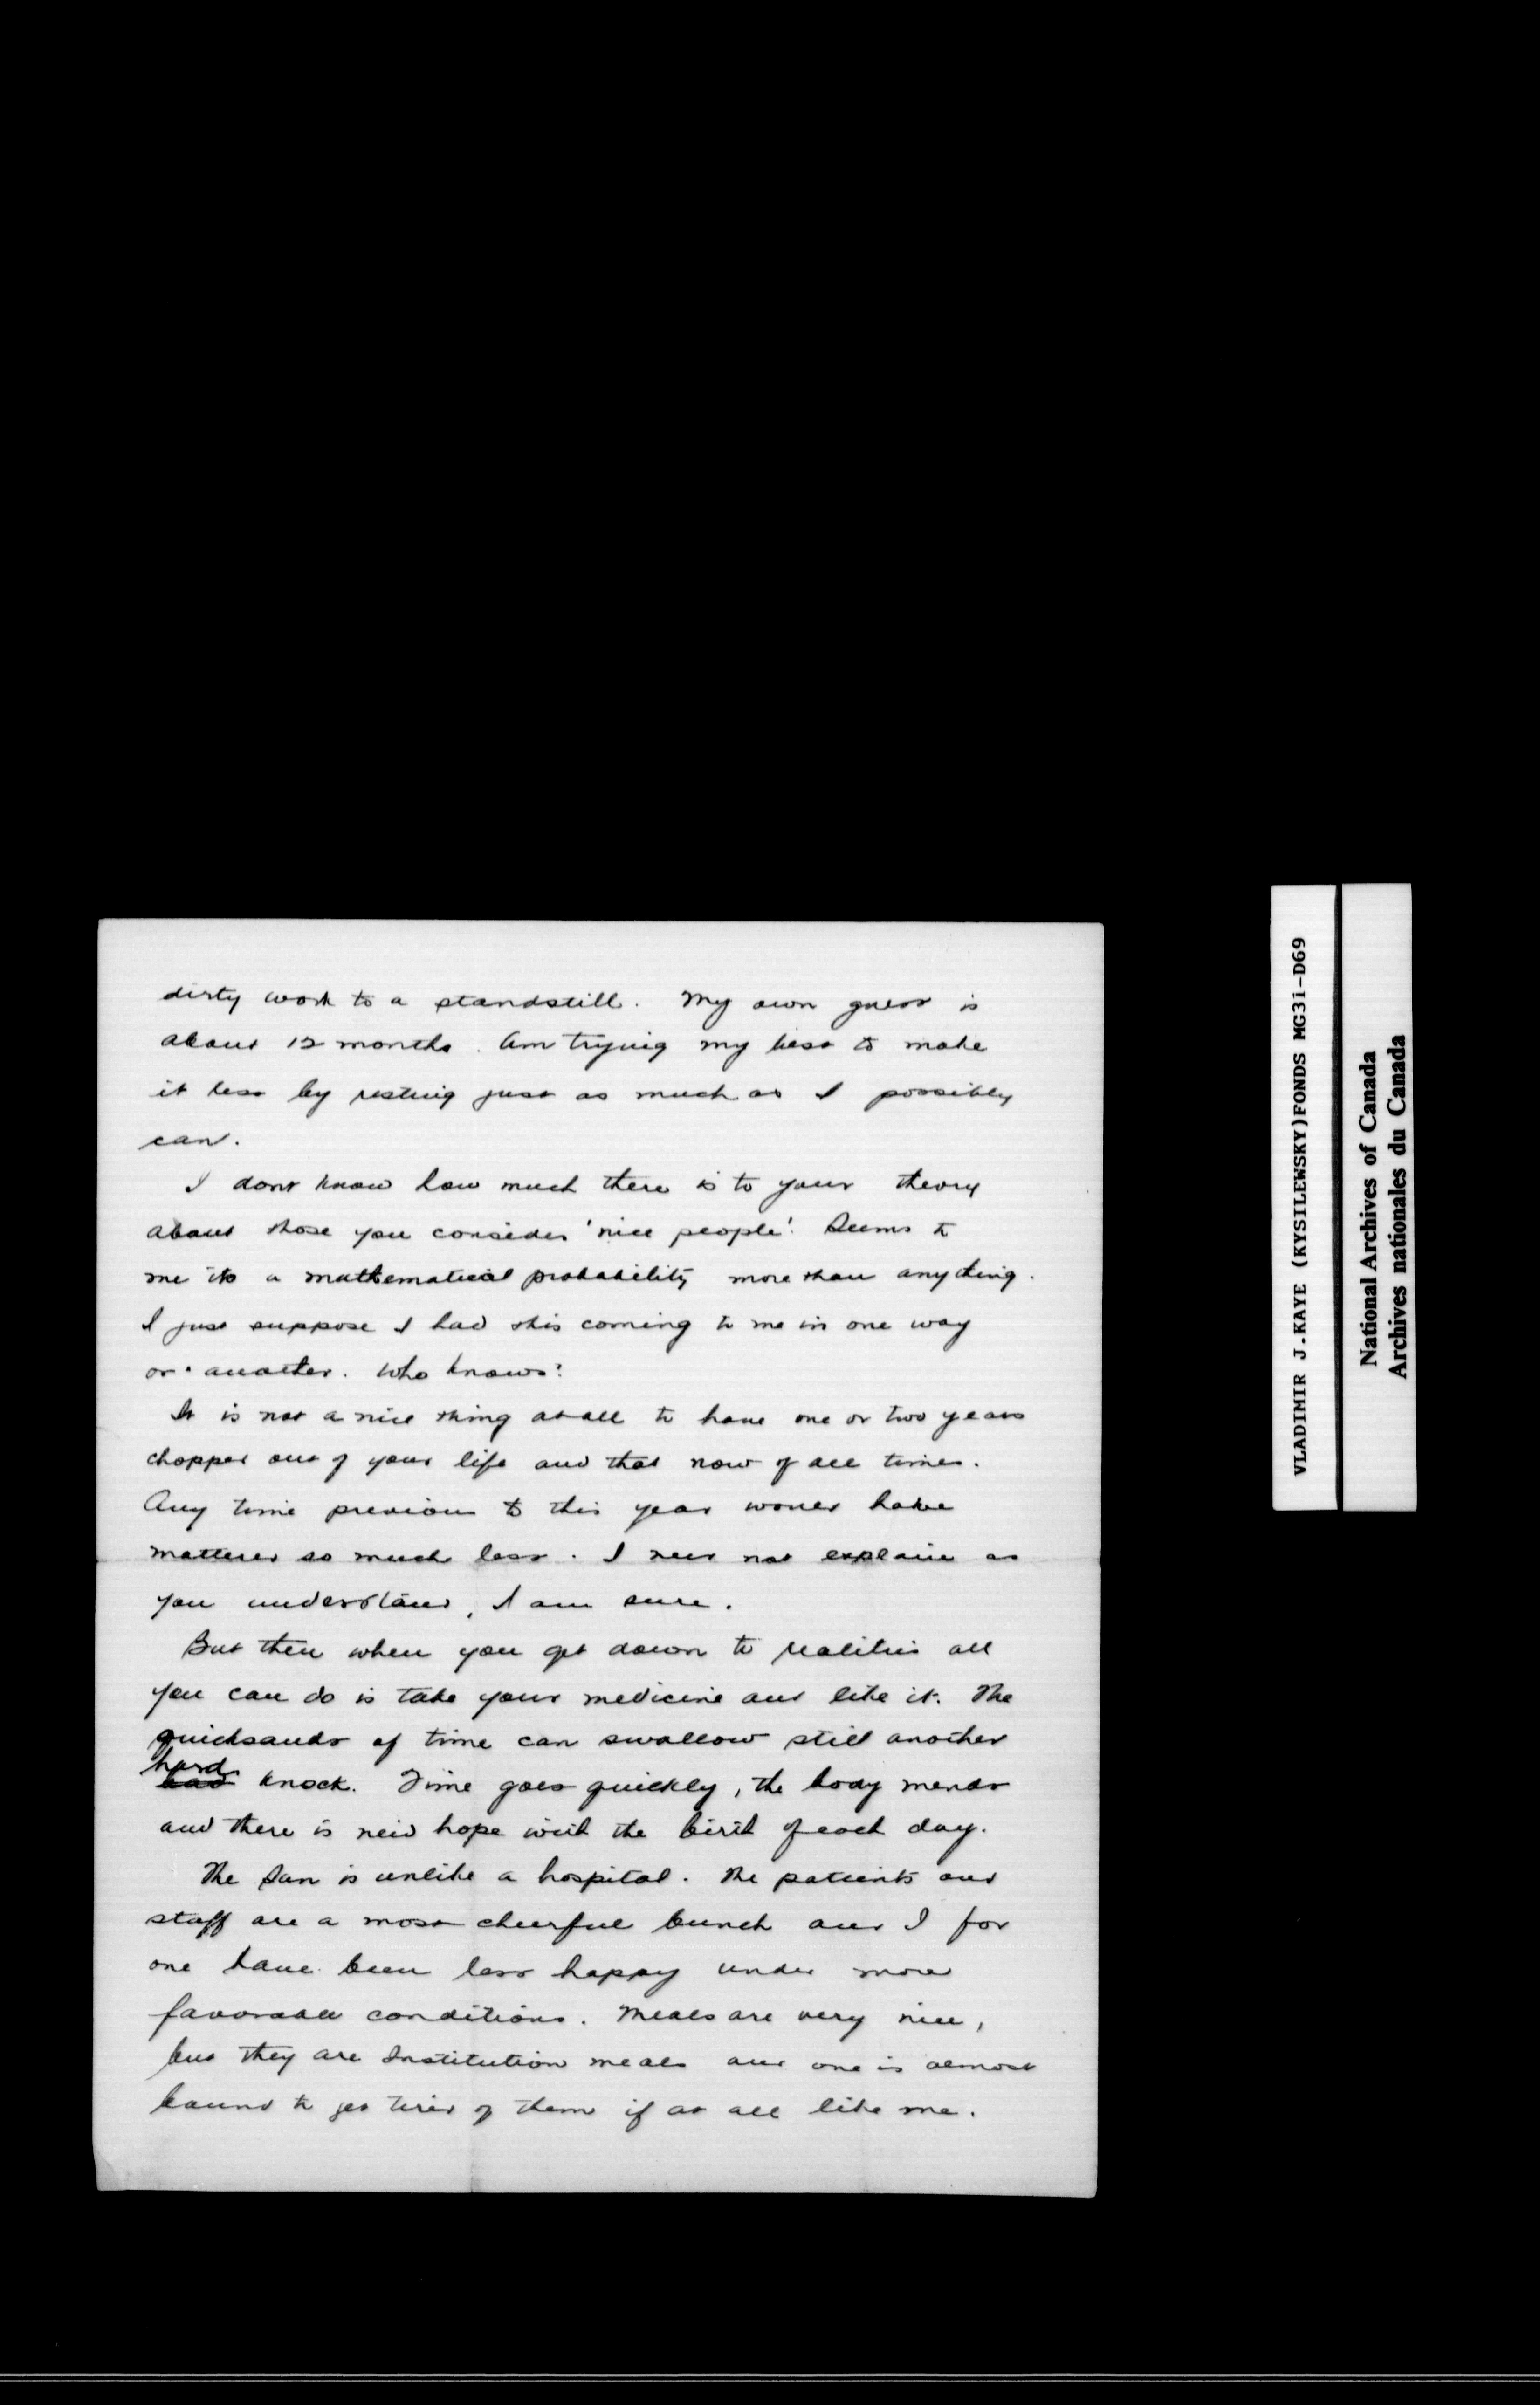 dirty work to a standstill. My own guess is
about 12 months. Am trying my best to make
it less by resting just as much as I possibly
can.
I dont know how much there is to your theory
about those you consider 'nice people'. Seems to
me its a mathematical probability more than anything.
I just suppose I had this coming to me in one way
or another. Who knows?
It is not a nice thing at all to have one or two years
chopped out of your life and that now of all times.
Any time previous to this year would have
mattered so much less. I need not explain as
you understand, I am sure.
But then when you get down to realities all
you can do is take your medicine and like it. The
quicksands of time can swallow still another
hard
bad knock. Time goes quickly, the body mends
and there is new hope with the birth of each day.
The San is unlike a hospital. The patients and
staff are a most cheerful bunch and I for
one have been less happy under more
favorable conditions. Meals are very nice,
but they are Institution meals and one is almost
bound to get tired of them if at all like me.
VLADIMIR J.KAYE (KYSILEWSKY)FONDS MG31-D69
National Archives of Canada
Archives nationales du Canada